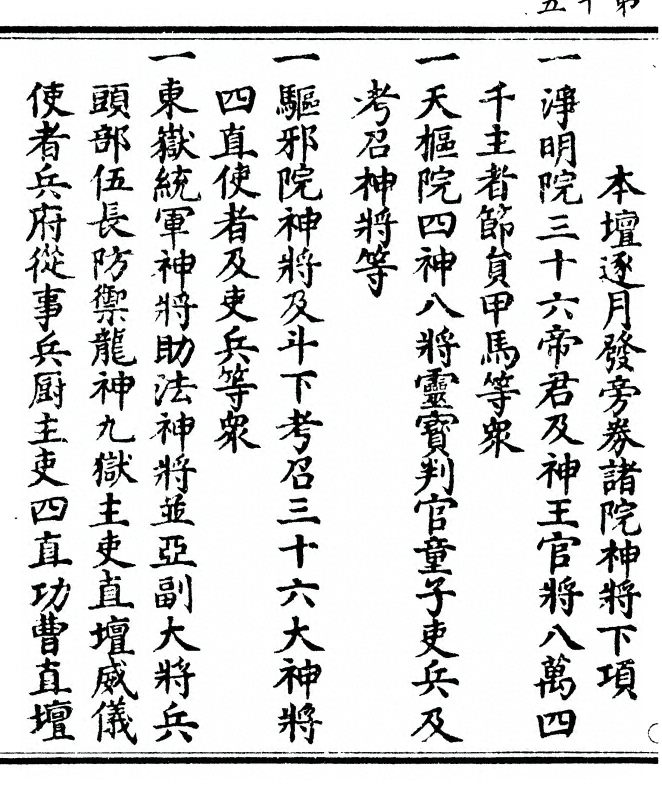 第十五
本壇逐月發旁券諸院神將下項
一淨明院三十六帝君及神王官將八萬四
千主者節負甲馬等衆
一天樞院四神八將靈寶判官童子吏兵及
考召神將等
一驅邪院神將及斗下考召三十六大神將
四直使者及吏兵等衆
一東嶽統軍神將助法神將並亞副大將兵
頭部伍長防禦龍神九嶽主吏直壇威儀
使者兵府從事兵厨主吏四直功曹直壇